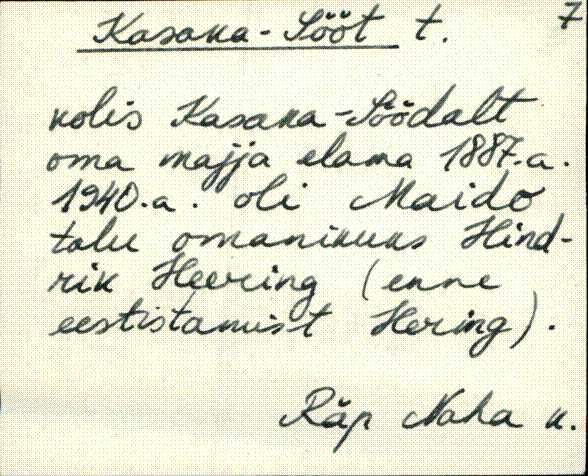 7
Kasaka-Sööt t.
kolis Kasaka-Söödalt
oma majja elama 1887.a.
1940.a. oli Maido
talu omanikuks Hind-
rik Heering (enne
eestistamist Hering).
Räp Naha k.